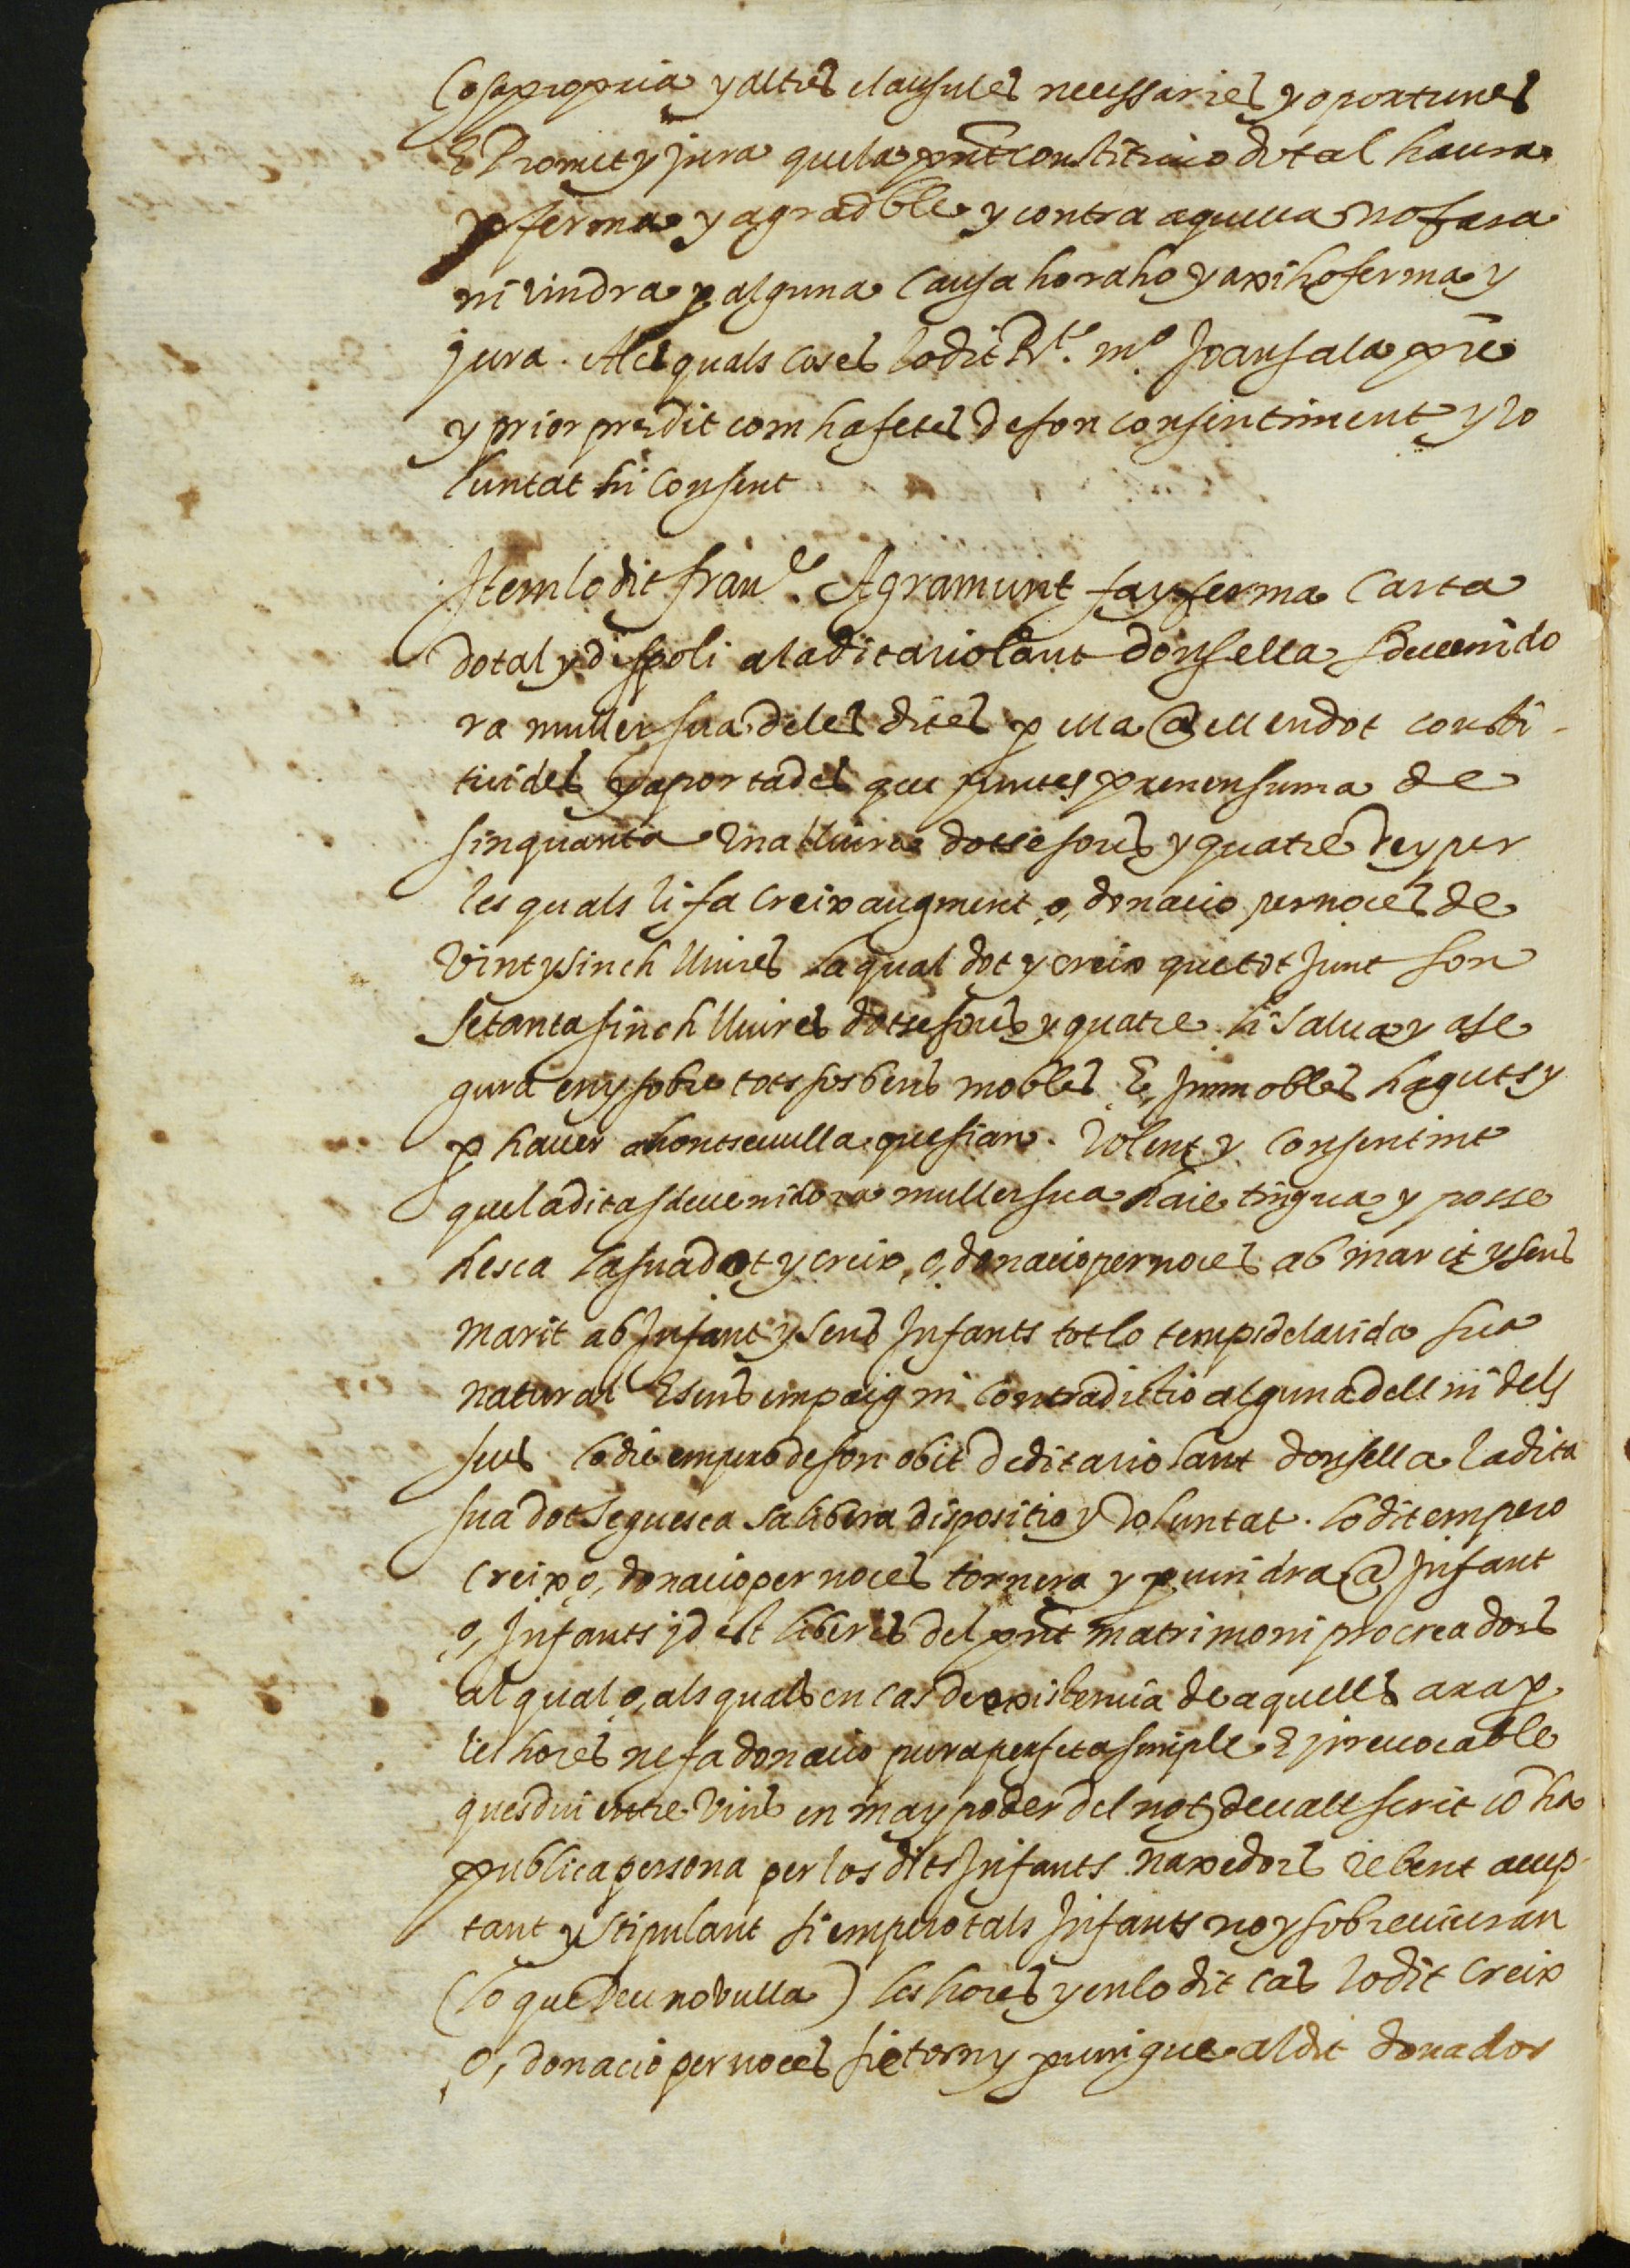 Cosa propria y altres clausules necessaries y oportunes
E Promet y jura que la pnt constitucio dotal haura
p ferma y agradble y contra aquella no fara
ni vindra p alguna causa ho raho y axi ho ferma y
jura. Ales quals coses lo dit Rt. mo. Joan sala pre
y prior predit com ha fetes de son consentiment y vo
luntat hi consent
Item lo dit franch. Agramunt fa y ferma Carta
dotal y de spoli a la dita violant donsella sdeuenido
ra muller sua de les dites p ella @ ell en dot consti-
tuides y aportades que juntes prenen suma de
sinquanta una lliura dotse sous y quatre dr y per
les quals li fa Creix augment o, donacio per noces de
vint y sinch lliures La qual dot y creix que tot junt son
setanta sinch lliures dotse sous y quatre li salua y ase
gura en y sobre tots sos bens mobles E, Immobles haguts y
p hauer ahontseuulla que sian. Volent y consentint
que la dita sdeuenidora muller sua haie tingua y posse
hesca la sua dot y creix, o, donacio per noces ab marit y sens
marit ab Infant y sens Infants tot lo temps de la vida sua
natural E sens empaig ni contradictio alguna dell ni dels
seus lo die empero de son obit de dita violant donsella la dita
sua dot seguesca sa libera dispositio y voluntat. lo dit empero
Creix o, donacio per noces tornera y peruindra @ Infant
o, Infants id est liberis del pnt matrimoni procreadors
al qual o, als quals en cas de existencia de aquells ara p
les hores ne fa donacio pura perfeta simple E irreuocable
ques diu entre vius en ma y poder del not deuall scrit co ha
publica persona per los dits Infants naxedors rebent accep-
tant y stipulant si empero tals Infants no y sobreuiuran
(lo que Deu no vulla) les hores y en lo dit cas lo dit Creix
o, donacio per noces sie torn y peruingue al dit donador